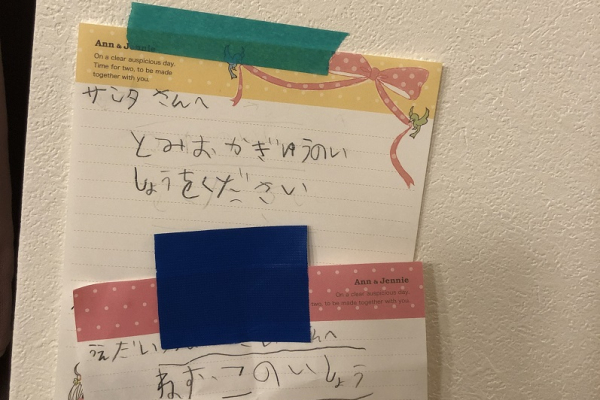 Ann & Jennie
On a clear auspicious day.
Time for two, to be made
together with you.
サンタ さんへ
とみおかぎゆうのい
しょうをください
Ann & Jennie
On a clear auspicious day.
two, to be made together with you.
さんへ
ねずこのいしょう